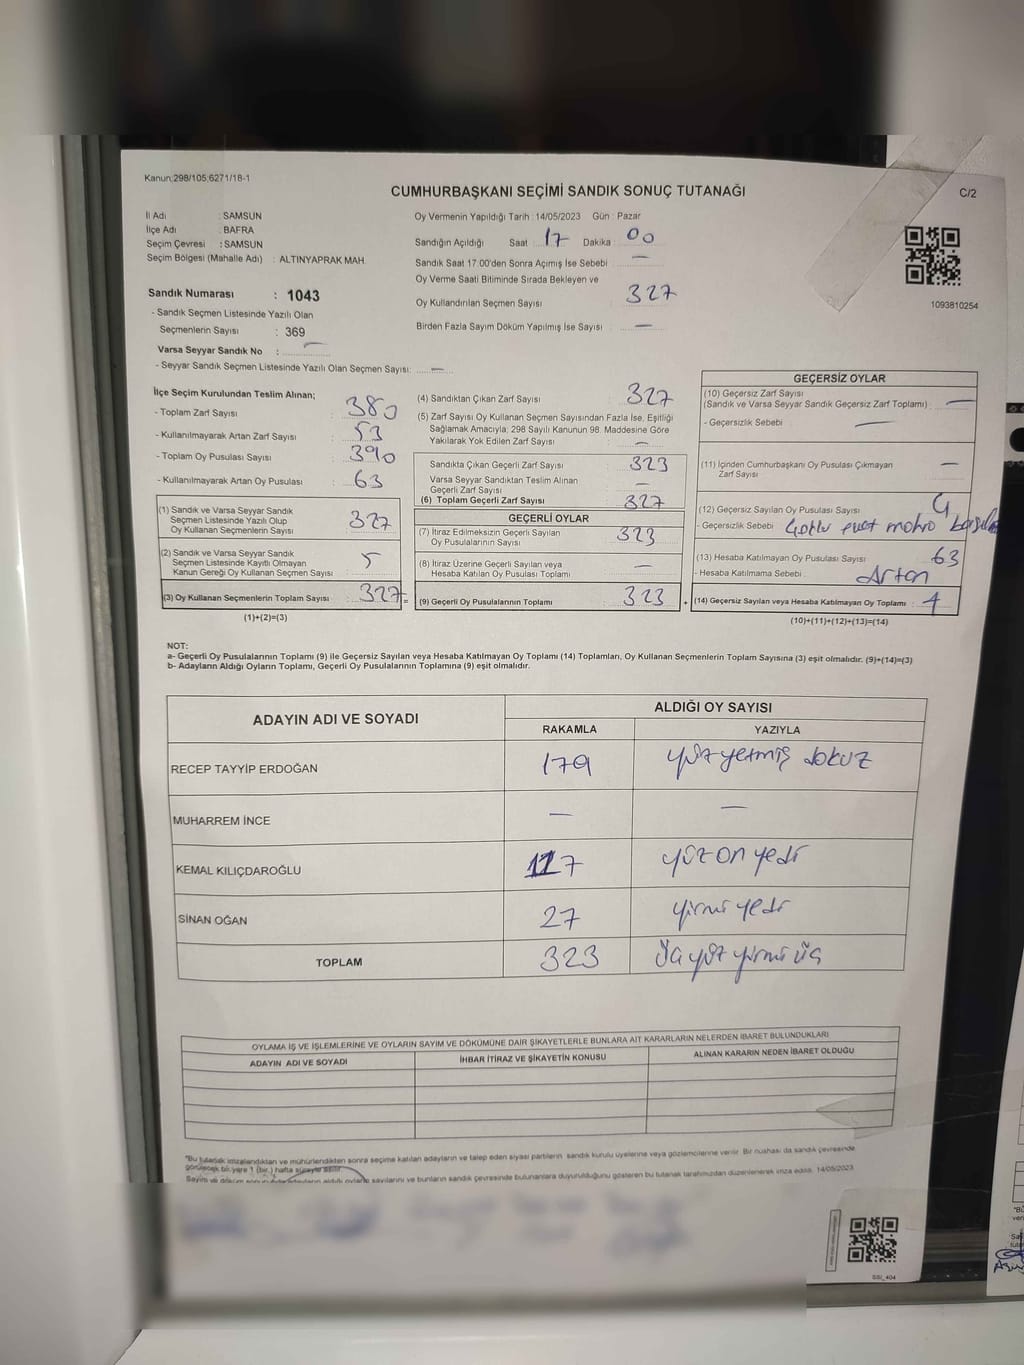 Kanun;298/105;6271/18-1
CUMHURBAŞKANI SEÇİMİ SANDIK SONUÇ TUTANAĞI
C/2
İl Adı : SAMSUN
İlçe Adı : BAFRA
Seçim Çevresi : SAMSUN
Seçim Bölgesi (Mahalle Adı) : ALTINYAPRAK MAH
Sandık Numarası : 1043
- Sandık Seçmen Listesinde Yazılı Olan
Seçmenlerin Sayısı : 369
Varsa Seyyar Sandık No : —
- Seyyar Sandık Seçmen Listesinde Yazılı Olan Seçmen Sayısı: —
Oy Vermenin Yapıldığı Tarih : 14/05/2023 Gün : Pazar
Sandığın Açıldığı Saat : 17 Dakika : 00
Sandık Saat 17:00'den Sonra Açımış İse Sebebi : —
Oy Verme Saati Bitiminde Sırada Bekleyen ve
Oy Kullandırılan Seçmen Sayısı : 327
Birden Fazla Sayım Döküm Yapılmış İse Sayısı : —
1093810254
İlçe Seçim Kurulundan Teslim Alınan;
- Toplam Zarf Sayısı : 380
- Kullanılmayarak Artan Zarf Sayısı : 53
- Toplam Oy Pusulası Sayısı : 390
- Kullanılmayarak Artan Oy Pusulası : 63
(1) Sandık ve Varsa Seyyar Sandık
Seçmen Listesinde Yazılı Olup
Oy Kullanan Seçmenlerin Sayısı : 327
(2) Sandık ve Varsa Seyyar Sandık
Seçmen Listesinde Kayıtlı Olmayan
Kanun Gereği Oy Kullanan Seçmen Sayısı : 5
(3) Oy Kullanan Seçmenlerin Toplam Sayısı : 327 =
(1)+(2)=(3)
(4) Sandıktan Çıkan Zarf Sayısı : 327
(5) Zarf Sayısı Oy Kullanan Seçmen Sayısından Fazla İse, Eşitliği
Sağlamak Amacıyla; 298 Sayılı Kanunun 98. Maddesine Göre
Yakılarak Yok Edilen Zarf Sayısı : —
Sandıkta Çıkan Geçerli Zarf Sayısı : 323
Varsa Seyyar Sandıktan Teslim Alınan
Geçerli Zarf Sayısı : —
(6) Toplam Geçerli Zarf Sayısı : 327
GEÇERLİ OYLAR
(7) İtiraz Edilmeksizin Geçerli Sayılan
Oy Pusulalarının Sayısı : 323
(8) İtiraz Üzerine Geçerli Sayılan veya
Hesaba Katılan Oy Pusulası Toplamı : —
(9) Geçerli Oy Pusulalarının Toplamı : 323 +
GEÇERSİZ OYLAR
(10) Geçersiz Zarf Sayısı
(Sandık ve Varsa Seyyar Sandık Geçersiz Zarf Toplamı) : —
- Geçersizlik Sebebi : —
(11) İçinden Cumhurbaşkanı Oy Pusulası Çıkmayan
Zarf Sayısı : —
(12) Geçersiz Sayılan Oy Pusulası Sayısı : 4
- Geçersizlik Sebebi :
(13) Hesaba Katılmayan Oy Pusulası Sayısı : 63
- Hesaba Katılmama Sebebi : Artan
(14) Geçersiz Sayılan veya Hesaba Katılmayan Oy Toplamı : 4
(10)+(11)+(12)+(13)=(14)
NOT:
a- Geçerli Oy Pusulalarının Toplamı (9) ile Geçersiz Sayılan veya Hesaba Katılmayan Oy Toplamı (14) Toplamları, Oy Kullanan Seçmenlerin Toplam Sayısına (3) eşit olmalıdır. (9)+(14)=(3)
b- Adayların Aldığı Oyların Toplamı, Geçerli Oy Pusulalarının Toplamına (9) eşit olmalıdır.
ADAYIN ADI VE SOYADI
ALDIĞI OY SAYISI
RAKAMLA YAZIYLA
RECEP TAYYİP ERDOĞAN 179 yüz yetmiş dokuz
MUHARREM İNCE — —
KEMAL KILIÇDAROĞLU 117 yüz on yedi
SİNAN OĞAN 27 yirmi yedi
TOPLAM 323 Üç yüz yirmi üç
OYLAMA İŞ VE İŞLEMLERİNE VE OYLARIN SAYIM VE DÖKÜMÜNE DAİR ŞİKAYETLERLE BUNLARA AİT KARARLARIN NELERDEN İBARET BULUNDUKLARI
ADAYIN ADI VE SOYADI İHBAR İTİRAZ VE ŞİKAYETİN KONUSU ALINAN KARARIN NEDEN İBARET OLDUĞU
"Bu tutanak imzalandıktan ve mühürlendikten sonra seçime katılan adayların ve talep eden siyasi partilerin sandık kurulu üyelerine veya gözlemcilerine verilir. Bir nüshası da sandık çevresinde
görülecek bir yere 1 (bir.) hafta süreyle asılır.
Sayım ve döküm sonun adayların aldığı oyların sayılarını ve bunların sandık çevresinde bulunanlara duyurulduğunu gösteren bu tutanak tarafımızdan düzenlenerek imza edildi. 14/05/2023
SSI_404